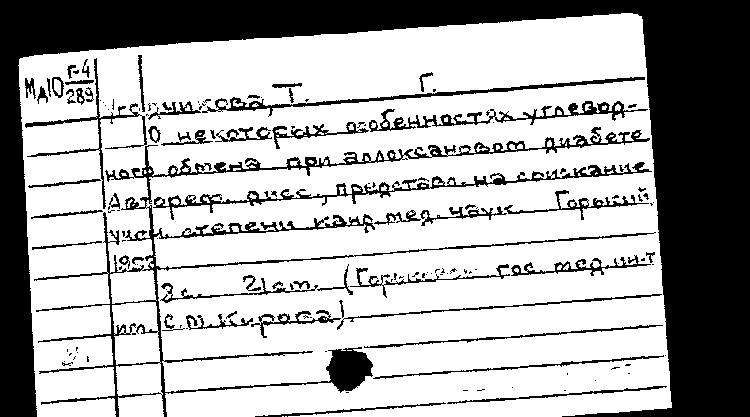 МД10 Г-4
289
Угодникова, Т. Г.
О некоторых особенностях углевод-
ного обмена при аллоксановом диабете
Автореф. дисс., представл. на соискание
учен. степени канд. мед. наук. Горький,
195
8 с. 21 см. (Горьковск гос. мед. ин-т
им. С.М. Кирова).